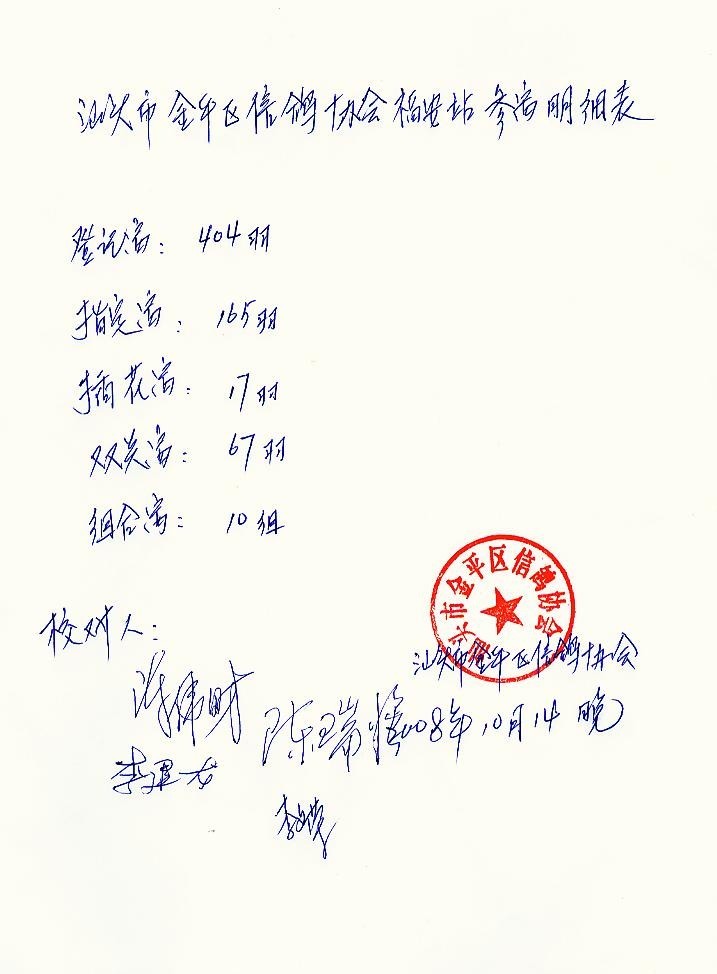 汕头市金平区信鸽协会福安站参赛明细表
登记赛: 404羽
指定赛: 165羽
插花赛: 17羽
双关赛: 67羽
组合赛: 10组
汕头市金平区信鸽协会
校对人:
汕头市金平区信鸽协会
陈瑞
2008年10月14晚
李建